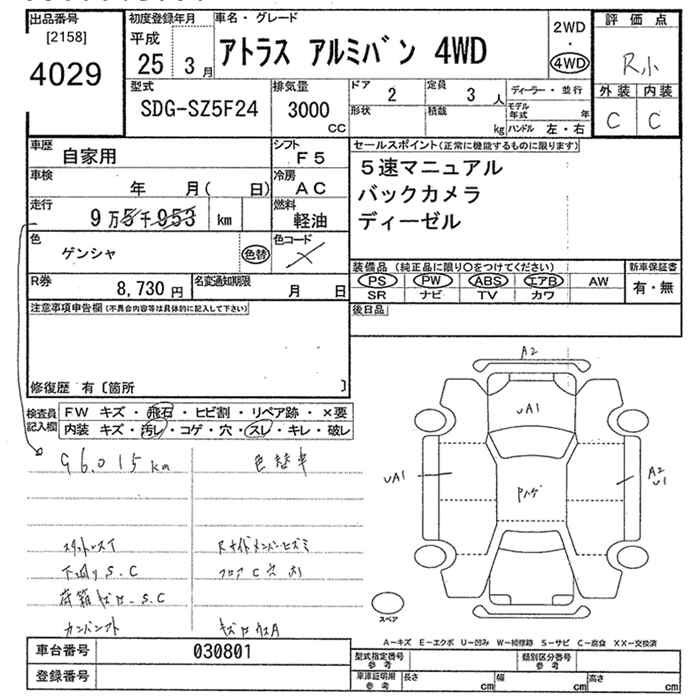 出品番号
[2158]
4029
初度登録年月
平成
25 3月
車名・グレード
アトラス アルミバン 4WD
2WD
・
4WD
評価点
R小
外装 内装
C C
型式
SDG-SZ5F24
排気量
3000
CC
ドア
2
定員
3 人
ディーラー・並行
形状
積載
kg
モデル年式 年
ハンドル 左・右
車歴
自家用
シフト
F5
車検
年 月( 日)
冷房
AC
走行
9万5千953 km
燃料
軽油
色
ゲンシャ
色替
色コード
R券
8,730 円
名変通知期限
月 日
セールスポイント(正常に機能するものに限ります)
5速マニュアル
バックカメラ
ディーゼル
装備品(純正品に限り○をつけてください)
PS PW ABS エアB AW
SR ナビ TV カワ
新車保証書
有・無
後日品
注意事項申告欄(不具合内容等は具体的に記入して下さい)
修復歴 有〔箇所 〕
検査員記入欄
FW キズ・飛石・ヒビ割・リペア跡・×要
内装 キズ・汚レ・コゲ・穴・スレ・キレ・破レ
96,015km
色替車
スタッドレスT
下廻りS.C
荷箱キズ凹.S.C
Rサイドメンバーヒズミ
フロアC穴あり
A2
uA1
uA1
Pハゲ
A2
u1
スペア
A-キズ E-エクボ U-凹み W-補修跡 S-サビ C-腐食 XX-交換済
車台番号
030801
登録番号
型式指定番号
参考
類別区分番号
参考
車庫証明用
参考
長さ cm 幅 cm 高さ cm